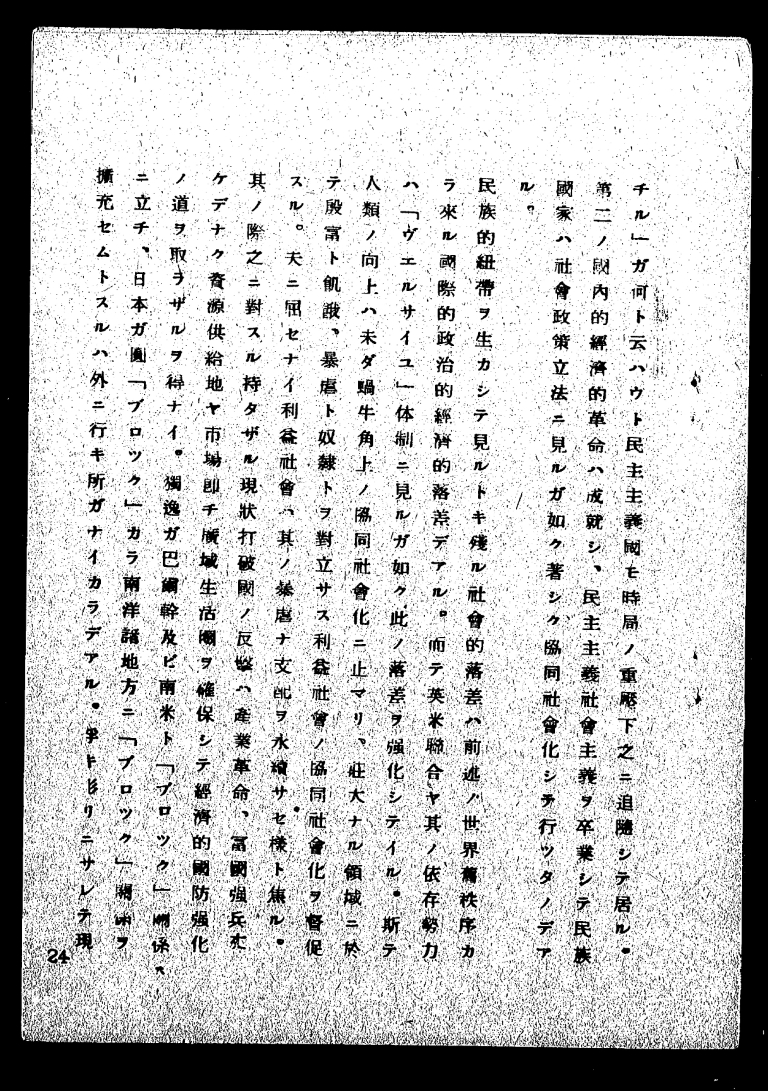 チル」ガ何ト云ハウト民主主義國モ時局ノ重壓下之ニ追隨シテ居ル。
第二ノ國內的經濟的革命ハ成就シ、民主主義社會主義ヲ卒業シテ民族
國家ハ社會政策立法ニ見ルガ如ク著シク協同社會化シテ行ツタノデア
ル。
民族的紐帶ヲ生カシテ見ルトキ殘ル社會的落差ハ前述ノ世界舊秩序カ
ラ來ル國際的政治的經濟的落差デアル。而テ英米聯合ヤ其ノ依存勢力
ハ「ヴエルサイユ」体制ニ見ルガ如ク此ノ落差ヲ强化シテイル。斯テ
人類ノ向上ハ未ダ蝸牛角上ノ協同社會化ニ止マリ、壯大ナル領域ニ於
テ殷富ト飢餓、暴虐ト奴隸トヲ對立サス利益社會ノ協同社會化ヲ督促
スル。天ニ屈セナイ利益社會ハ其ノ暴虐ナ支配ヲ永續サセ樣ト焦ル。
其ノ際之ニ對スル持タザル現狀打破國ノ反擊ハ產業革命、富國强兵丈
ケデナク資源供給地ヤ市場卽チ廣域生活圈ヲ確保シテ經濟的國防强化
ノ道ヲ取ラザルヲ得ナイ。獨逸ガ巴爾幹及ビ南米ト「ブロツク」關係
ニ立チ、日本ガ圓「ブロツク」カラ南洋諸地方ニ「ブロツク」關係ヲ
擴充セムトスルハ外ニ行キ所ガナイカラデアル。サレテ現
24